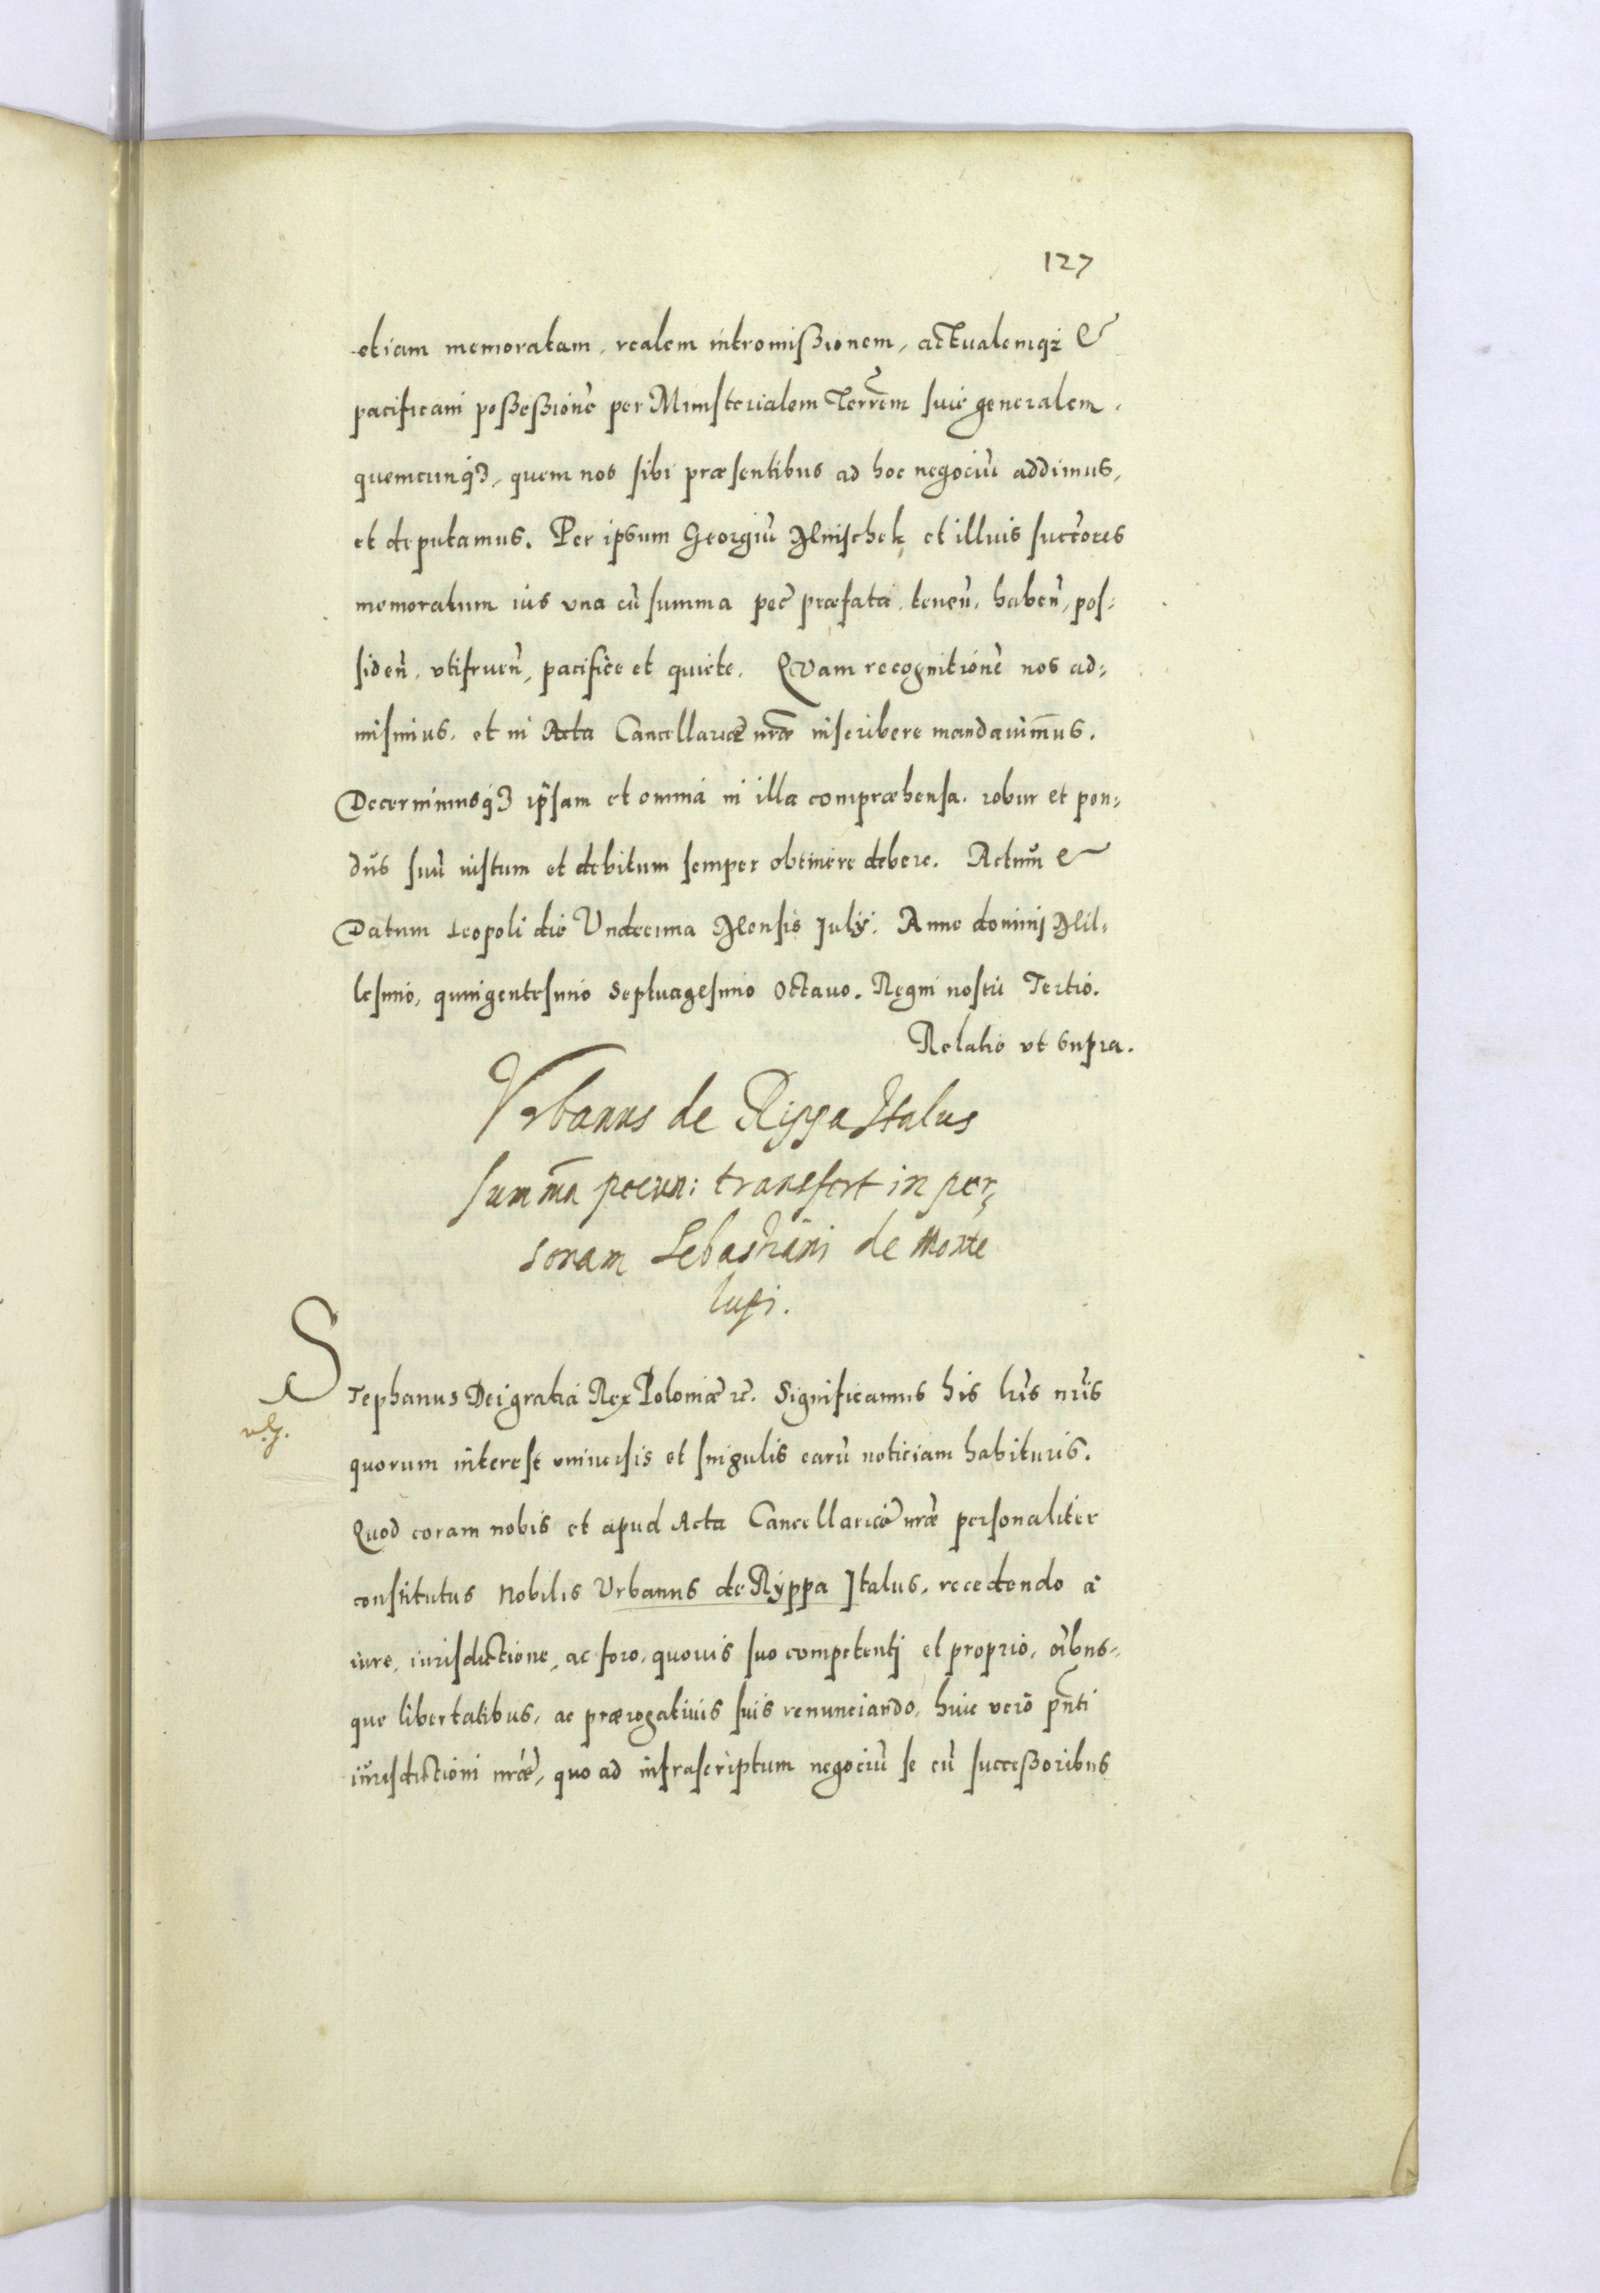 127
etiam memoratam, realem intromißionem, actualemqz &
pacificam poßeßione͂ per Ministerialem Terrem͂ sive generalem,
quemcunqʒ, quem nos sibi præsentibus ad hoc negociu͂ addimus,
et deputamus. Per ipsum Georgiu͂ Mnischek et illius succ͂ores
memoratum ius vna cu͂ summa pec͂ præfata, tenen͂, haben͂, pos-
siden͂, vtifruen͂, pacifice et quiete. Quam recognitione͂ nos ad-
misimus, et in Acta Cancellariæ nr͂æ inscribere mandauimus.
Decernimusqʒ ip͂sam et omnia in illa compræhensa, robur et pon-
dus suu͂ iustum et debitum semper obtinere debere. Actum &
Datum Leopoli die Vndecima Mensis July. Anno dominj Mil-
lesimo, quingentesimo Septuagesimo Octauo. Regni nostri Tertio.
Relatio vt supra.
Vrbanus de Rippa Italus
summa͂ pecun: transfert in per-
sonam Sebastiani de Monte
lupi.
Stephanus Dei gratia Rex Poloniæ &c. Significamus his lr͂is nr͂is
quorum interest vniuersis et singulis earu͂ noticiam habituris.
Quod coram nobis et apud Acta Cancellariæ nr͂æ personaliter
constitutus Nobilis Vrbanus de Ryppa Italus, recedendo a
iure, iurisdictione, ac foro, quouis suo competentj et proprio, oi͂bus-
que libertatibus, ac prærogatiuis suis renunciando, huic vero pn͂ti
iurisdictioni nr͂æ, quo ad infrascriptum negociu͂ se cu͂ succeßoribus